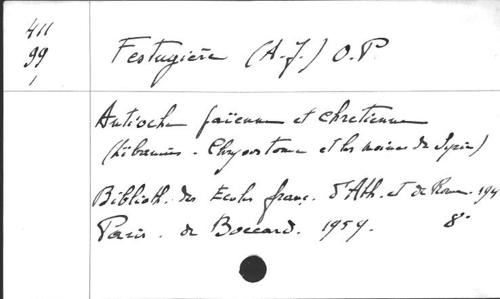 411
99
1
Festugière (A-J.) O.P.
Antioche païenne et chrétienne
(Libanius. Chrysostome et les moines de Syrie)
Biblioth. des Ecoles franç. d'Ath. et de Rome. 194
Paris. de Boccard. 1959. 8°